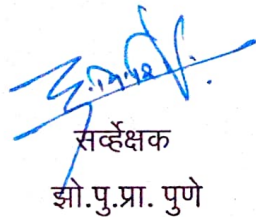 सर्व्हेक्षक
झो.पु.प्रा. पुणे